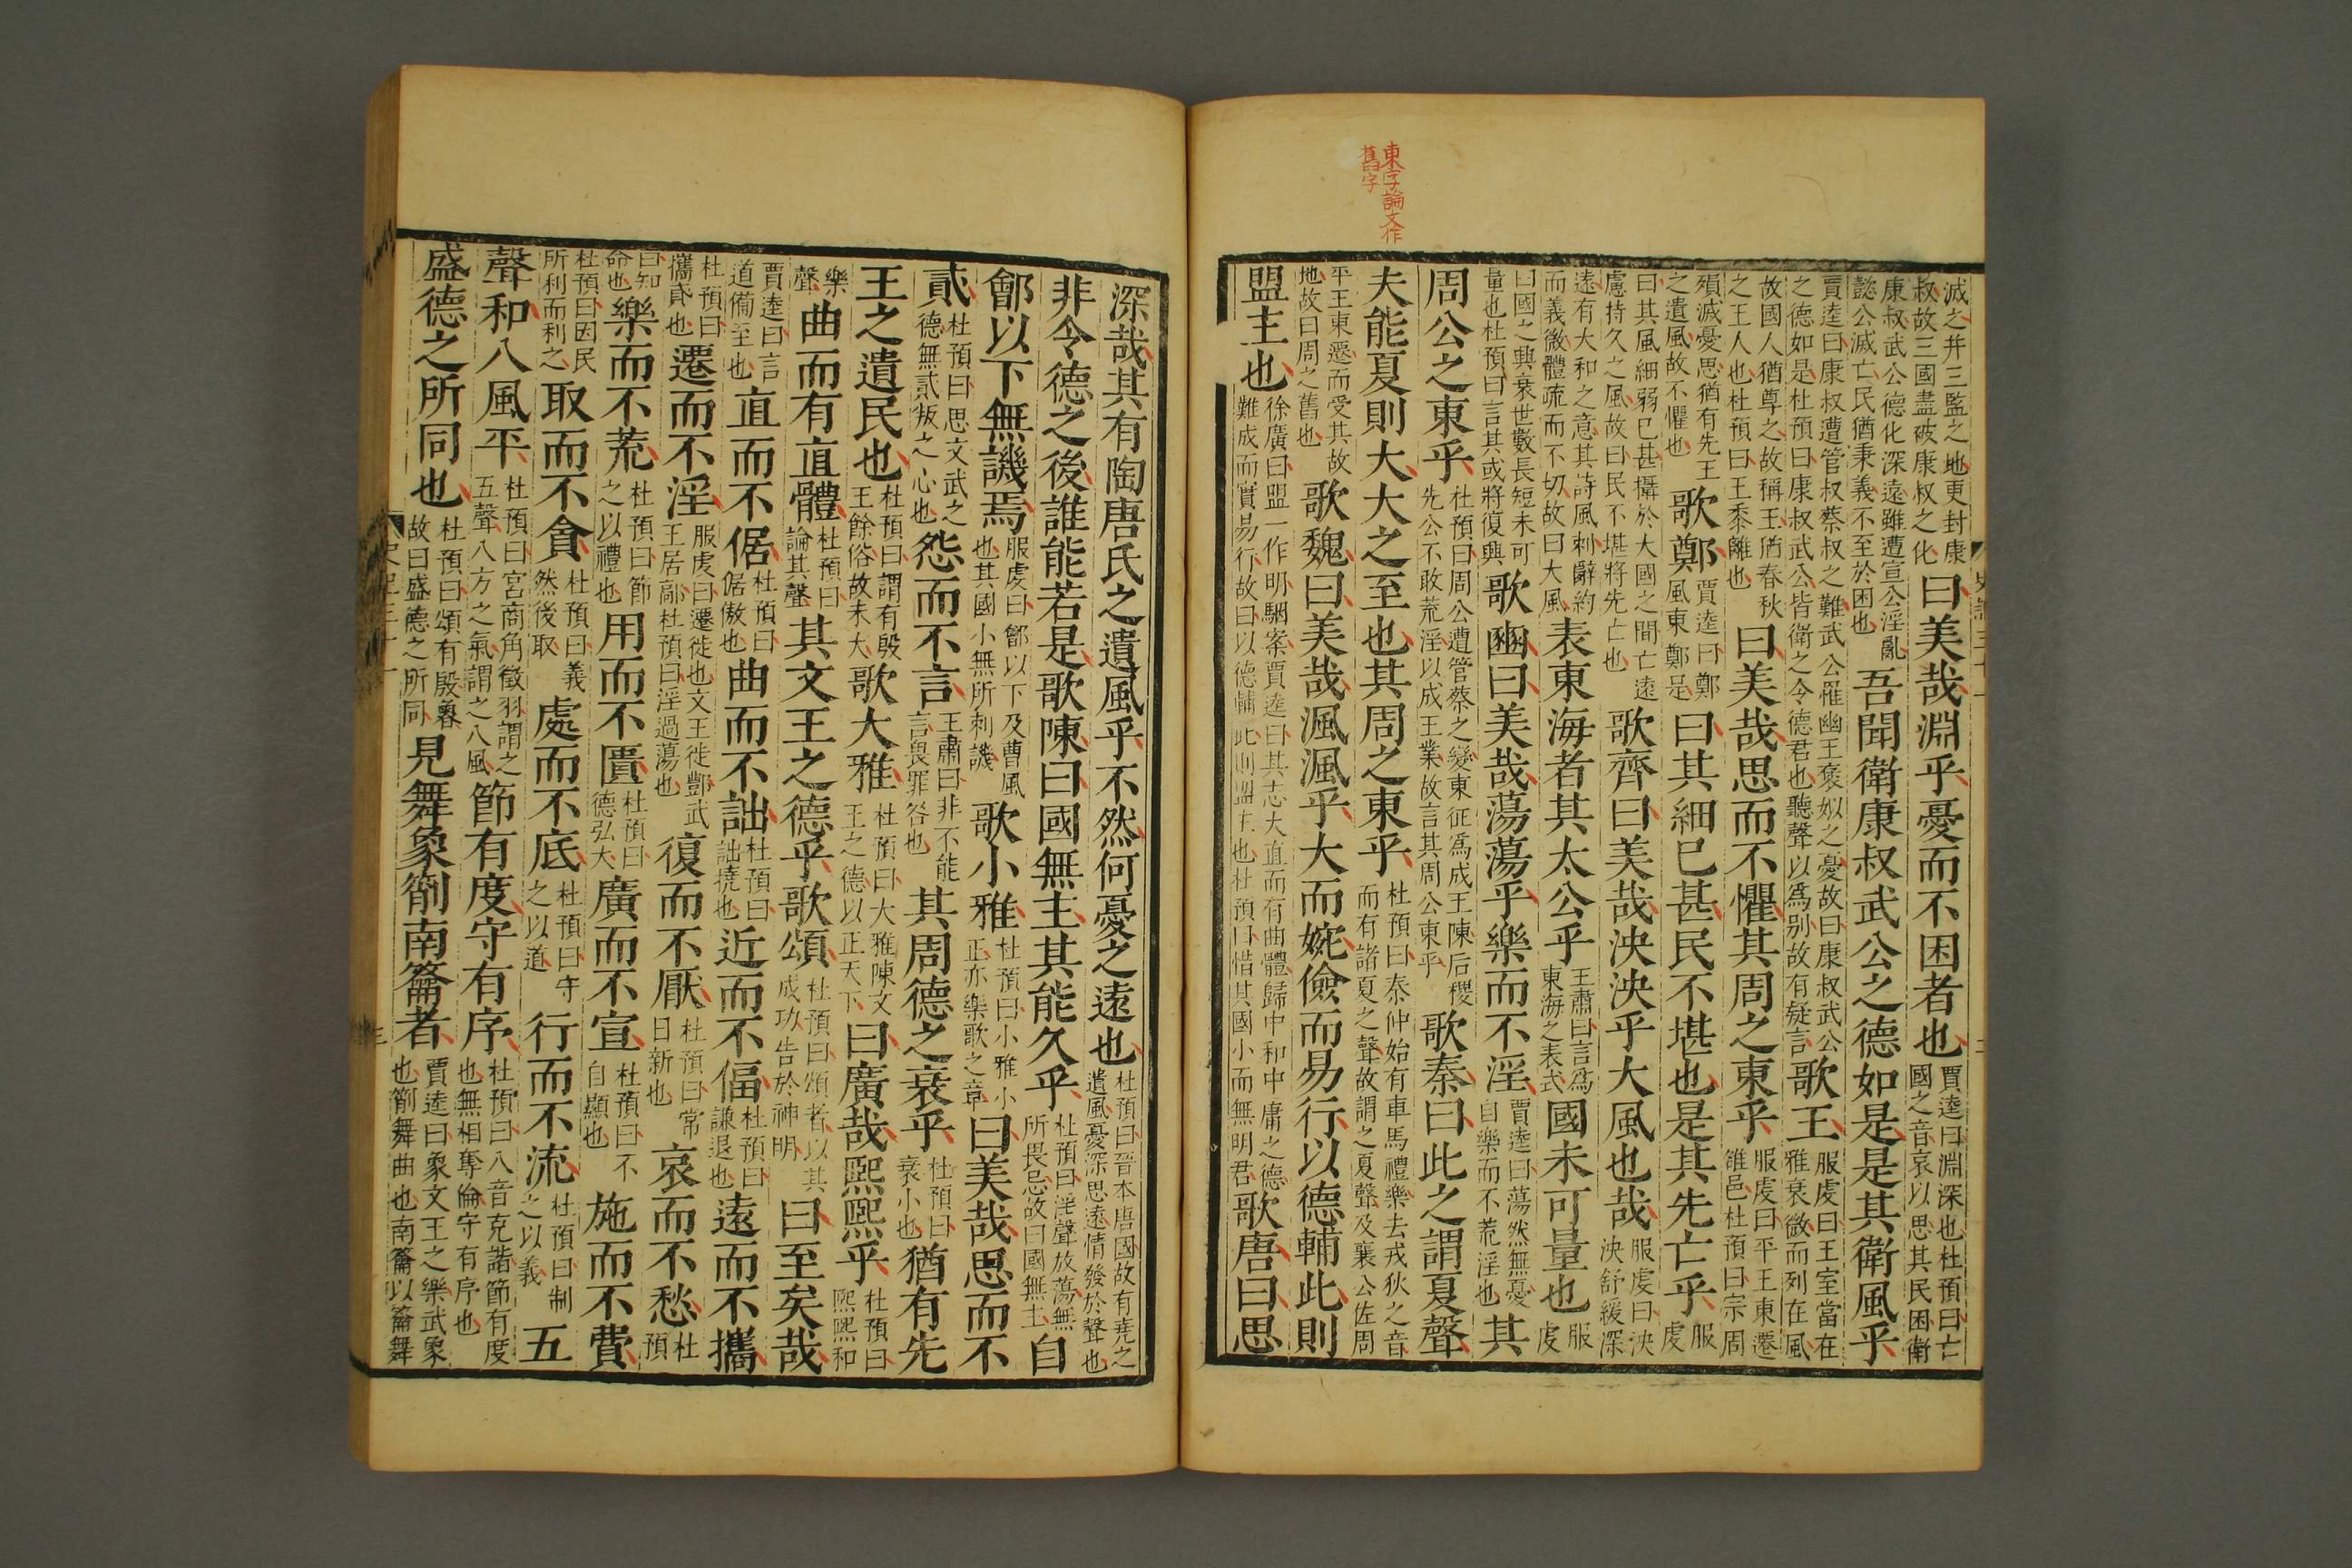 東字論文作
舊字
滅之并三監之地更封康叔故三國盡破康叔之化曰美哉淵乎憂而不困者也賈逵曰淵深也杜預曰亡國之音哀以思其民困衛
康叔武公德化深遠雖遭宣公淫亂懿公滅亡民猶秉義不至於困也吾聞衛康叔武公之德如是是其衛風乎
賈逵曰康叔遭管叔蔡叔之難武公罹幽王褒姒之憂故曰康叔武公之德如是杜預曰康叔武公皆衛之令德君也聽聲以爲别故有疑言歌王服虔曰王室當在雅衰微而列在風
故國人猶尊之故稱王猶春秋之王人也杜預曰王黍離也曰美哉思而不懼其周之東乎服虔曰平王東遷雒邑杜預曰宗周
殞滅憂思猶有先王之遺風故不懼也歌鄭賈逵曰鄭風東鄭是曰其細已甚民不堪也是其先亡乎服虔
曰其風細弱已甚攝於大國之間亡遠慮持久之風故曰民不堪將先亡也歌齊曰美哉泱泱乎大風也哉服虔曰泱泱舒緩深
遠有大和之意其詩風刺辭約而義微體疏而不切故曰大風表東海者其太公乎王肅曰言爲東海之表式國未可量也服虔
曰國之興衰世數長短未可量也杜預曰言其或將復興歌豳曰美哉蕩蕩乎樂而不淫賈逵曰蕩然無憂自樂而不荒淫也其
周公之東乎杜預曰周公遭管蔡之變東征爲成王陳后稷先公不敢荒淫以成王業故言其周公東乎歌秦曰此之謂夏聲
夫能夏則大大之至也其周之東乎杜預曰秦仲始有車馬禮樂去戎狄之音而有諸夏之聲故謂之夏聲及襄公佐周
平王東遷而受其故地故曰周之舊也歌魏曰美哉渢渢乎大而婉儉而易行以德輔此則
盟主也徐廣曰盟一作明駰案賈逵曰其志大直而有曲體歸中和中庸之德難成而實易行故曰以德輔此則盟主也杜預曰惜其國小而無明君歌唐曰思
深哉其有陶唐氏之遺風乎不然何憂之遠也杜預曰晉本唐國故有堯之遺風憂深思遠情發於聲也
非令德之後誰能若是歌陳曰國無主其能久乎杜預曰淫聲放蕩無所畏忌故曰國無主自
鄶以下無譏焉服虔曰鄶以下及曹風也其國小無所刺譏歌小雅杜預曰小雅小正亦樂歌之章曰美哉思而不
貳杜預曰思文武之德無貳叛之心也怨而不言王肅曰非不能言畏罪咎也其周德之衰乎杜預曰衰小也猶有先
王之遺民也杜預曰謂有殷王餘俗故未大歌大雅杜預曰大雅陳文王之德以正天下曰廣哉熙熙乎杜預曰熙熙和
樂聲曲而有直體杜預曰論其聲其文王之德乎歌頌杜預曰頌者以其成功告於神明曰至矣哉
賈逵曰言道備至也直而不倨杜預曰倨傲也曲而不詘杜預曰詘撓也近而不偪杜預曰謙退也遠而不攜
杜預曰攜貳也遷而不淫服虔曰遷徙也文王徙酆武王居鄗杜預曰淫過蕩也復而不厭杜預曰常日新也哀而不愁杜預
曰知命也樂而不荒杜預曰節之以禮也用而不匱杜預曰德弘大廣而不宣杜預曰不自顯也施而不費
杜預曰因民所利而利之取而不貪杜預曰義然後取處而不底杜預曰守之以道行而不流杜預曰制之以義五
聲和八風平杜預曰宮商角徵羽謂之五聲八方之氣謂之八風節有度守有序杜預曰八音克諧節有度也無相奪倫守有序也
盛德之所同也杜預曰頌有殷魯故曰盛德之所同見舞象箾南籥者賈逵曰象文王之樂武象也箾舞曲也南籥以籥舞